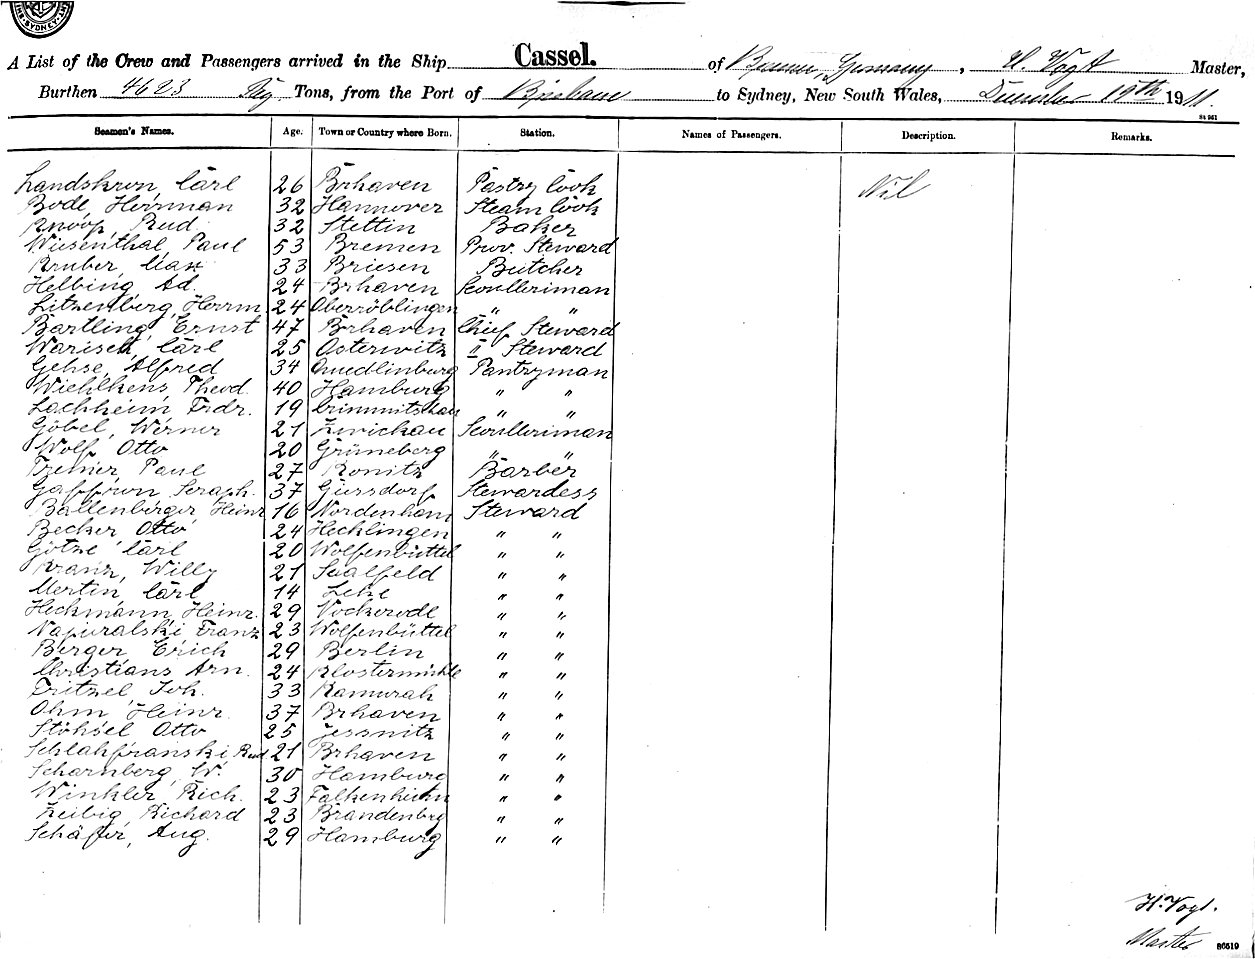 SYDNEY
A List of the Crew and Passengers arrived in the Ship Cassel. of Bremen, Germany, H. Vogt Master,
Burthen 4623 Reg Tons, from the Port of Brisbane to Sydney, New South Wales, December 19th 1911.
St 961
Seamen's Names. Age. Town or Country where Born. Station. Names of Passengers. Description. Remarks.
Landskron, Carl 26 Brhaven Pastry Cook Nil
Bode, Herrman 32 Hannover Steam Cook
Knoop, Rud. 32 Stettin Baker
Wiesenthal, Paul 53 Bremen Prov. Steward
Kruber, Max 33 Briesen Butcher
Helbing, Ad. 24 Brhaven Scoulleriman
Litzenberg, Herrm 24 Oberröblingen " "
Bartling, Ernst 47 Brhaven Chief Steward
Warisch, Carl 25 Osterwitz II Steward
Gehse, Alfred 34 Quedlinburg Pantryman
Wiehlkens, Theod. 40 Hamburg " "
Lachheim, Frdr. 19 Crimmitschau " "
Göbel, Werner 21 Zwickau Scoulleriman
Wolf, Otto 20 Grüneberg " "
Tremer, Paul 27 Konitz Barber
Gaffron, Seraph. 37 Giersdorf Stewardess
Ballenberger, Heinr 16 Nordenham Steward
Becker, Otto 24 Hecklingen " "
Götze, Carl 20 Wolfenbüttel " "
Kranz, Willy 21 Saalfeld " "
Mertin, Carl 14 Lehe " "
Heckmann, Heinr. 29 Vockerode " "
Napuralski, Franz 23 Wolfenbüttel " "
Berger, Erich 29 Berlin " "
Christians, Arn. 24 Klostermühle " "
Fritzel, Joh. 33 Kamurah " "
Ohm, Heinr. 37 Brhaven " "
Stöhsel, Otto 25 Jessnitz " "
Schlahfranski, Rud 21 Brhaven " "
Scharnberg, W. 30 Hamburg " "
Winkler, Rich. 23 Falkenhein " "
Zeibig, Richard 23 Brandenbrg " "
Schäfer, Aug. 29 Hamburg " "
H. Vogt.
Master
86519